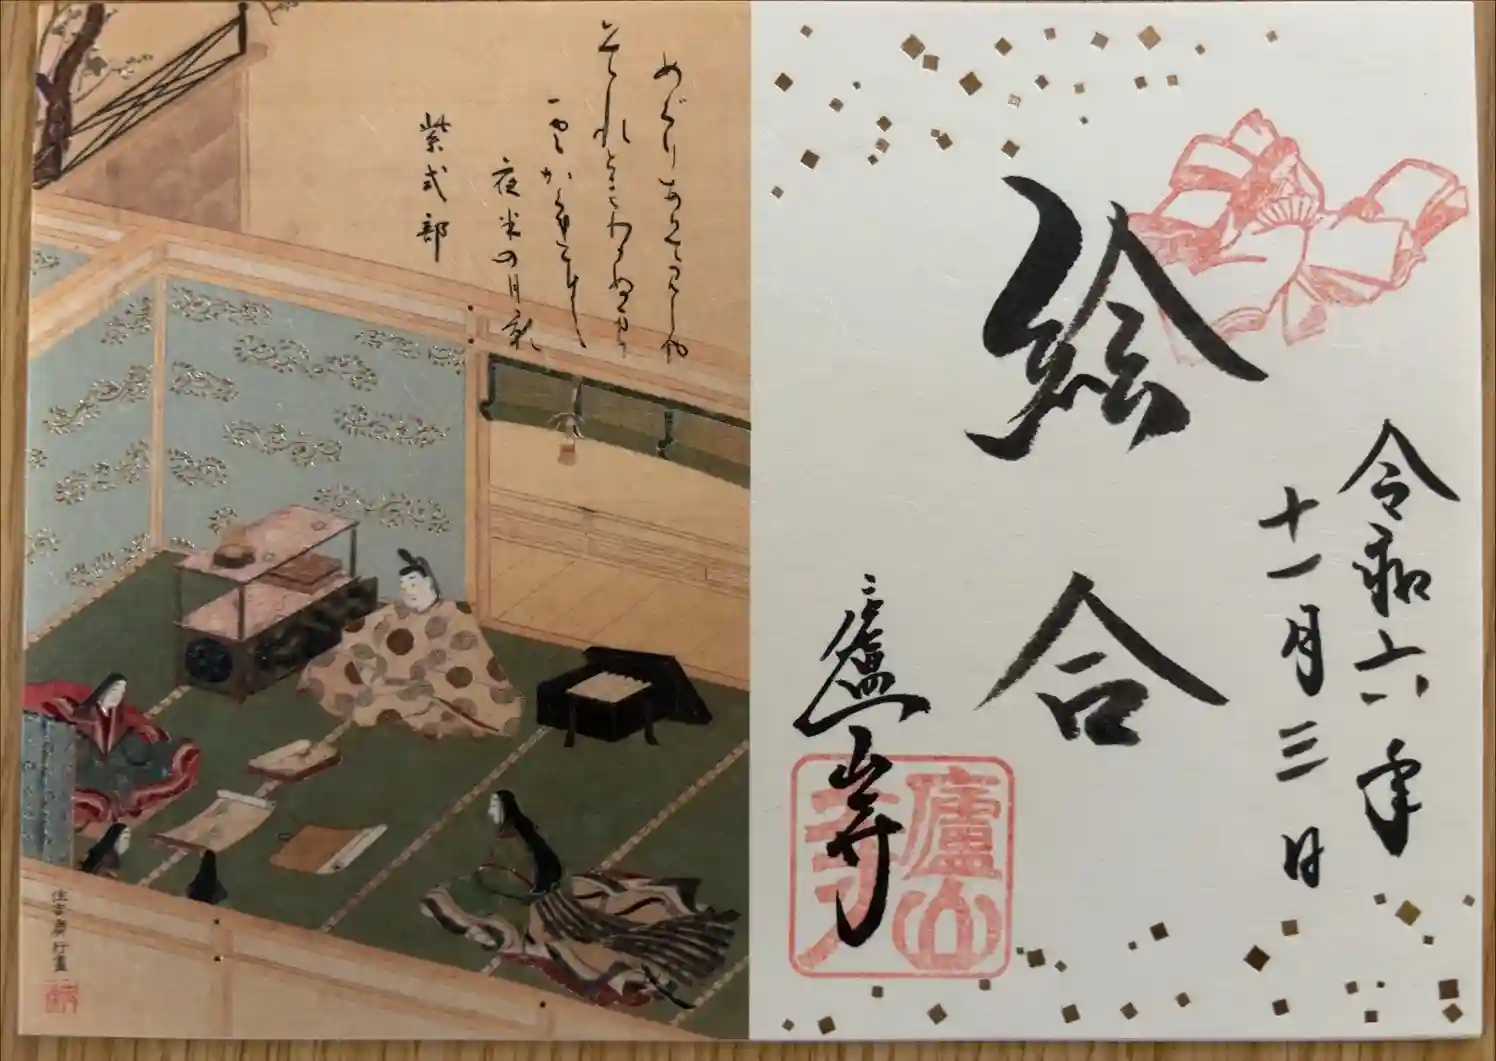 令和六年
十一月三日
絵合
廬山寺
廬山
寺
めぐりあひてみしや
それともわかぬまに
雲かくれにし
夜半の月影
紫式部
住吉廣行畫